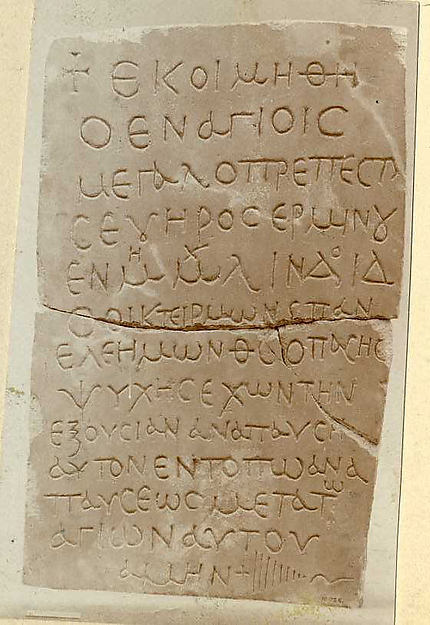 ☩ ΕΚΟΙΜΗΘΗ
Ο ΕΝ ΑΓΙΟΙϹ
ΜΕΓΑΛΟΠΡΕΠΕϹΤ
ϹΕΥΗΡΟϹ ΕΡΜΙΝΟΥ
ΕΝ ΜΗ ΜΧ Λ ΙΝΔο ΙΔ
Ο ΟΙΚΤΕΙΡΜΩΝ Ϲ ΠΑΝ
ΕΛΕΗΜΩΝ ΘϹ Ο ΠΑϹΗϹ
ΨΥΧΗϹ ΕΧΩΝ ΤΗΝ
ΕΞΟΥϹΙΑΝ ΑΝΑΠΑΥϹΗ
ΑΥΤΟΝ ΕΝ ΤΟΠΩ ΑΝΑ
ΠΑΥϹΕΩϹ ΜΕΤΑ ΤΩ
ΑΓΙΩΝ ΑΥΤΟΥ
ΑΜΗΝ +